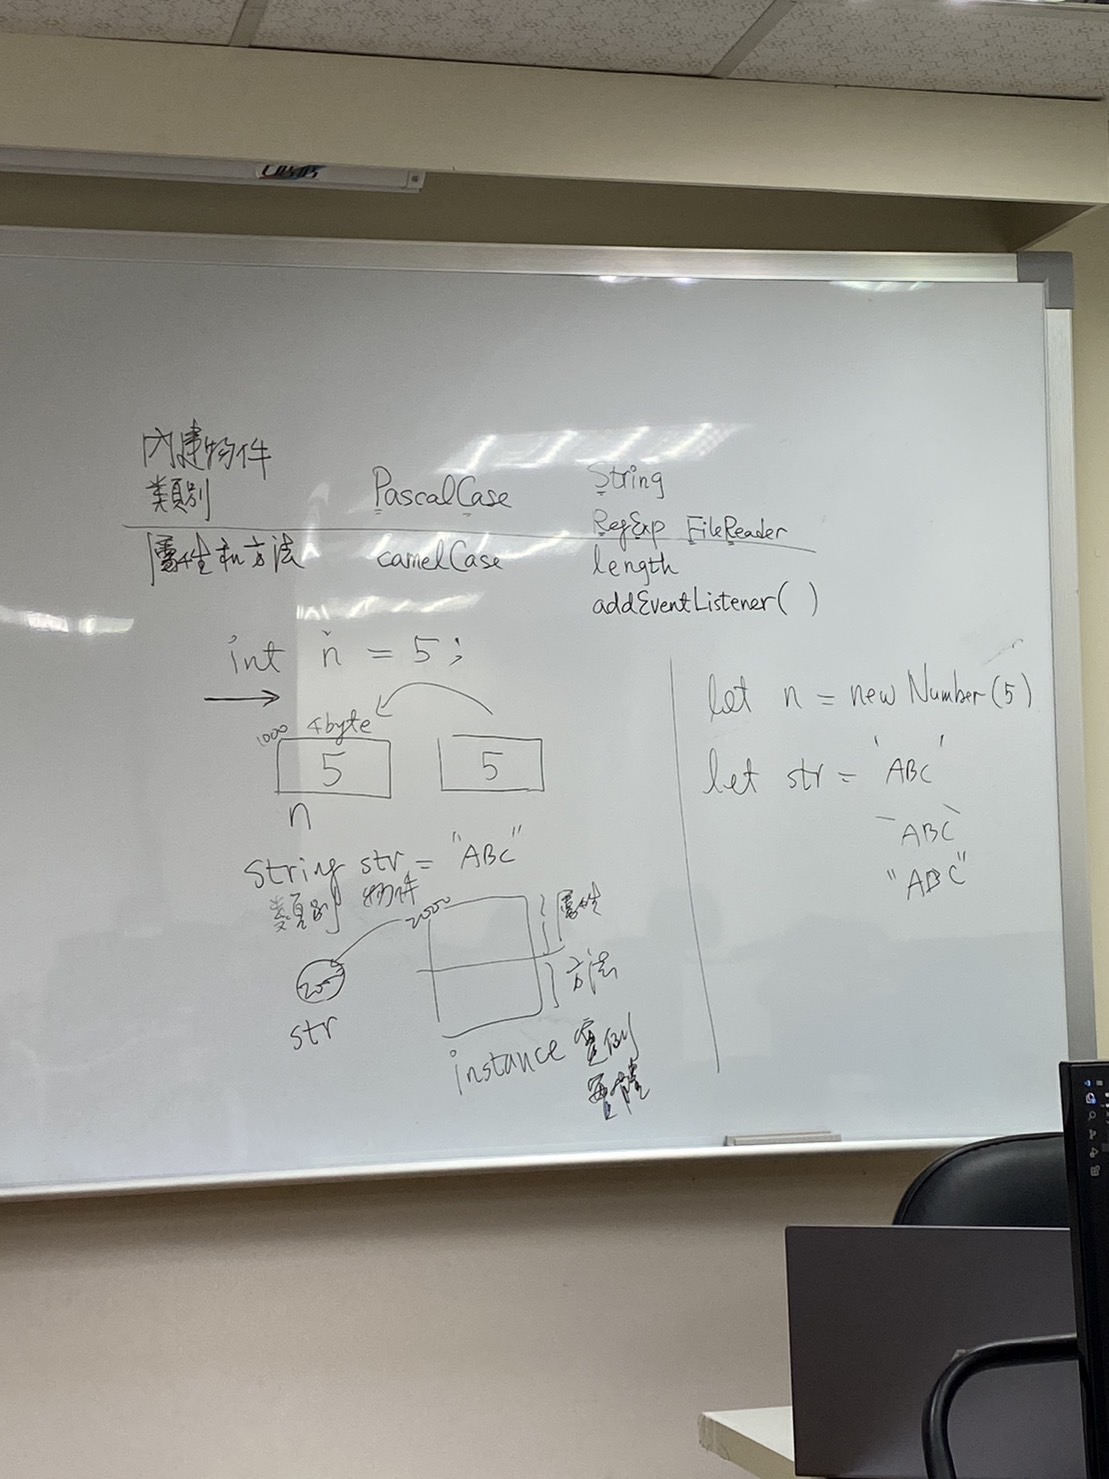 內建物件
類別 PascalCase String
RegExp FileReader
屬性和方法 camelCase length
addEventListener( )
int n = 5;
1000 4byte
5 5
n
String str = "ABC"
類別 物件
2000 屬性
方法
str
instance 實例
實體
let n = new Number(5)
let str = 'ABC'
`ABC`
"ABC"